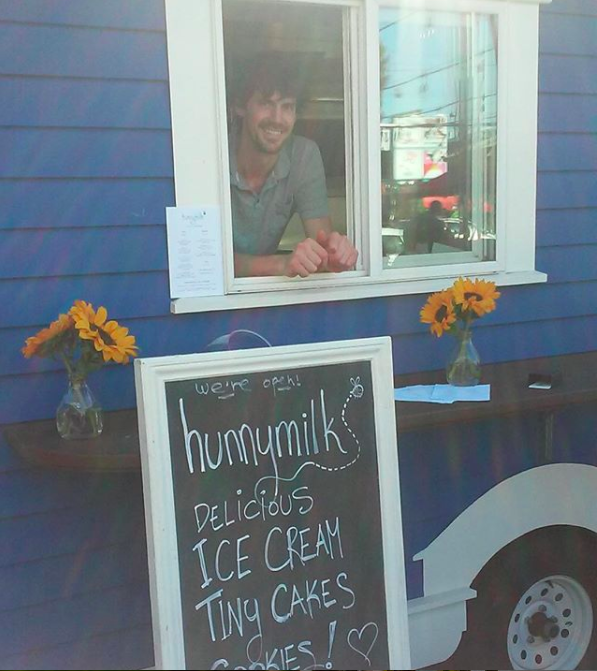 hunnymilk
we're open!
hunnymilk
DELICIOUS
ICE CREAM
TINY CAKES
COOKIES!